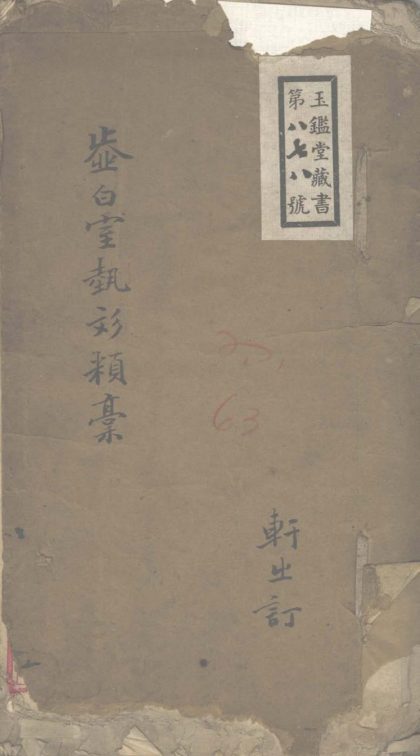 玉鑑堂藏書
第八七八號
虛白室執文類稾
63
軒出訂